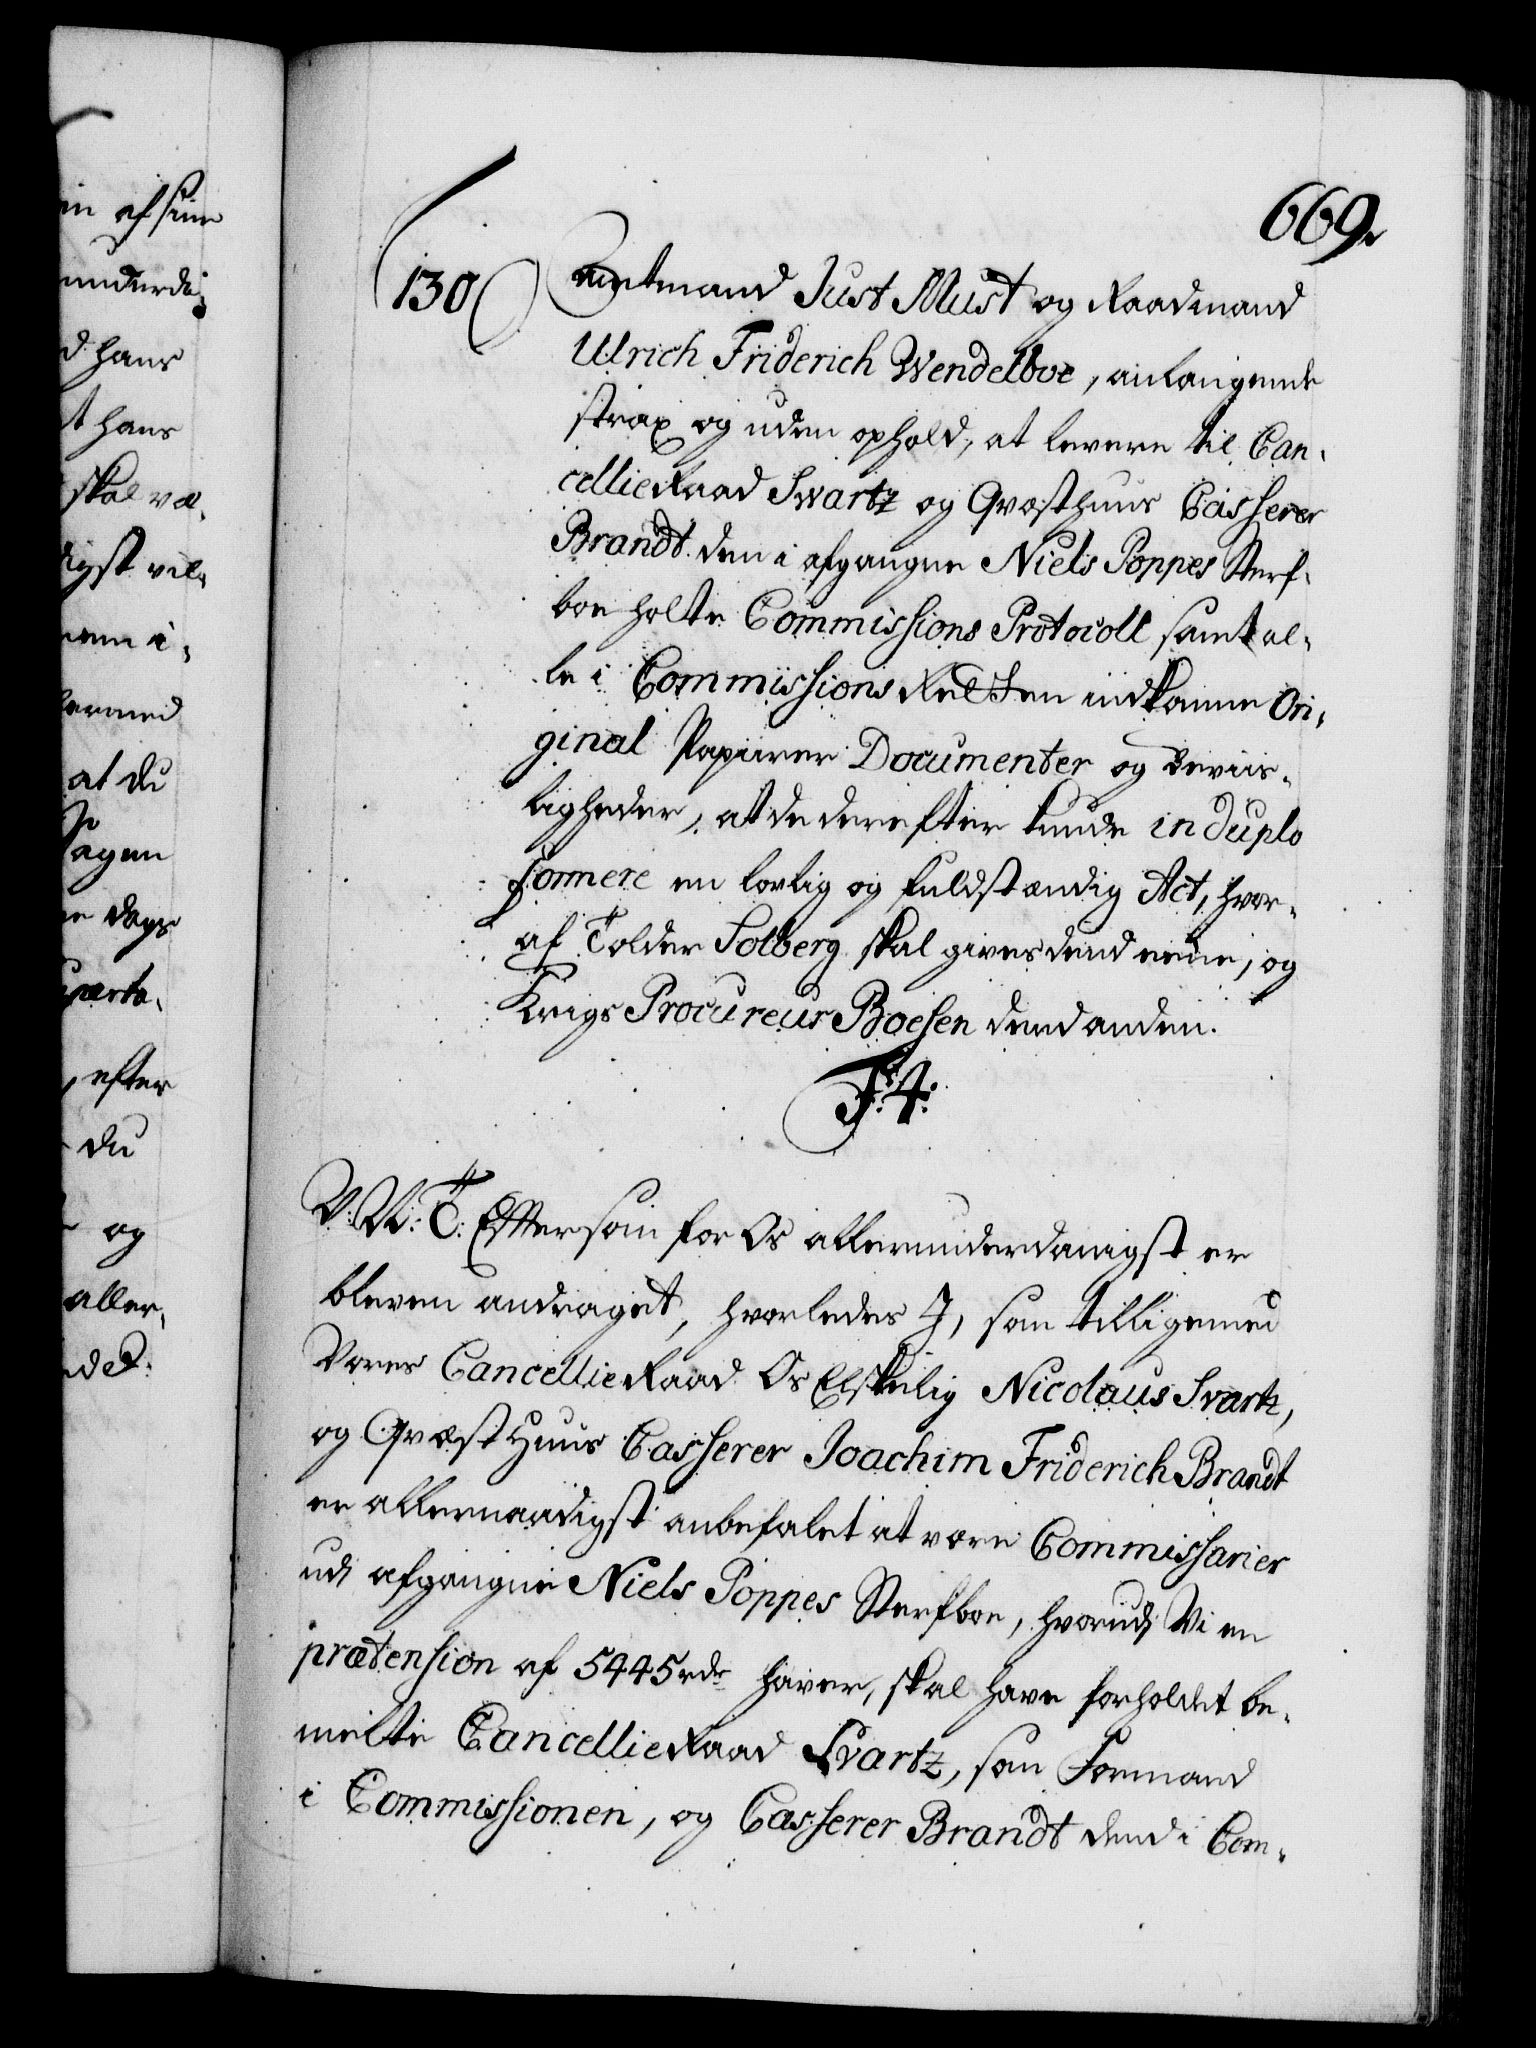 in af sine
d hans
t hans
skal væ-
digst vil-
nem i-
hermed
at du
Sagen
e dags
efter
du
og
aller-
669.
130 Amtmand Just Must og Raadmand
Ulrich Friderich Wendelboe, anlangende
strax og uden ophold, at levere til Can-
cellieRaad Swartz og Qvæsthuus Casserer
Brandt den i afgangne Niels Poppes Sterf-
boe holte Commissions Protocoll samt al-
le i Commissions Retten indkomne Ori-
ginal Papiirer Documenter og Beviis-
ligheder, at de derefter kunde in duplo
formere en lovlig og fuldstændig Act, hvor-
af Tolder Solberg skal gives dend eene, og
Krigs Procureur Boesen dend anden.
F: 4:
V: W: T: Eftersom for Os allerunderdanigst er
bleven andraget, hvorledes I, som tilligemed
Vores CancellieRaad Os Elskelig Nicolaus Svartz,
og Qvæst Huus Casserer Joachim Friderich Brandt
er allernaadigst anbefalet at være Commissarier
udi afgangne Niels Poppes Sterfboe, hvorudj Vi en
prætension af 5445 rdr haver, skal have forholdet be-
melte CancellieRaad Svartz, som Formand
i Commissionen, og Casserer Brandt dend i Com-